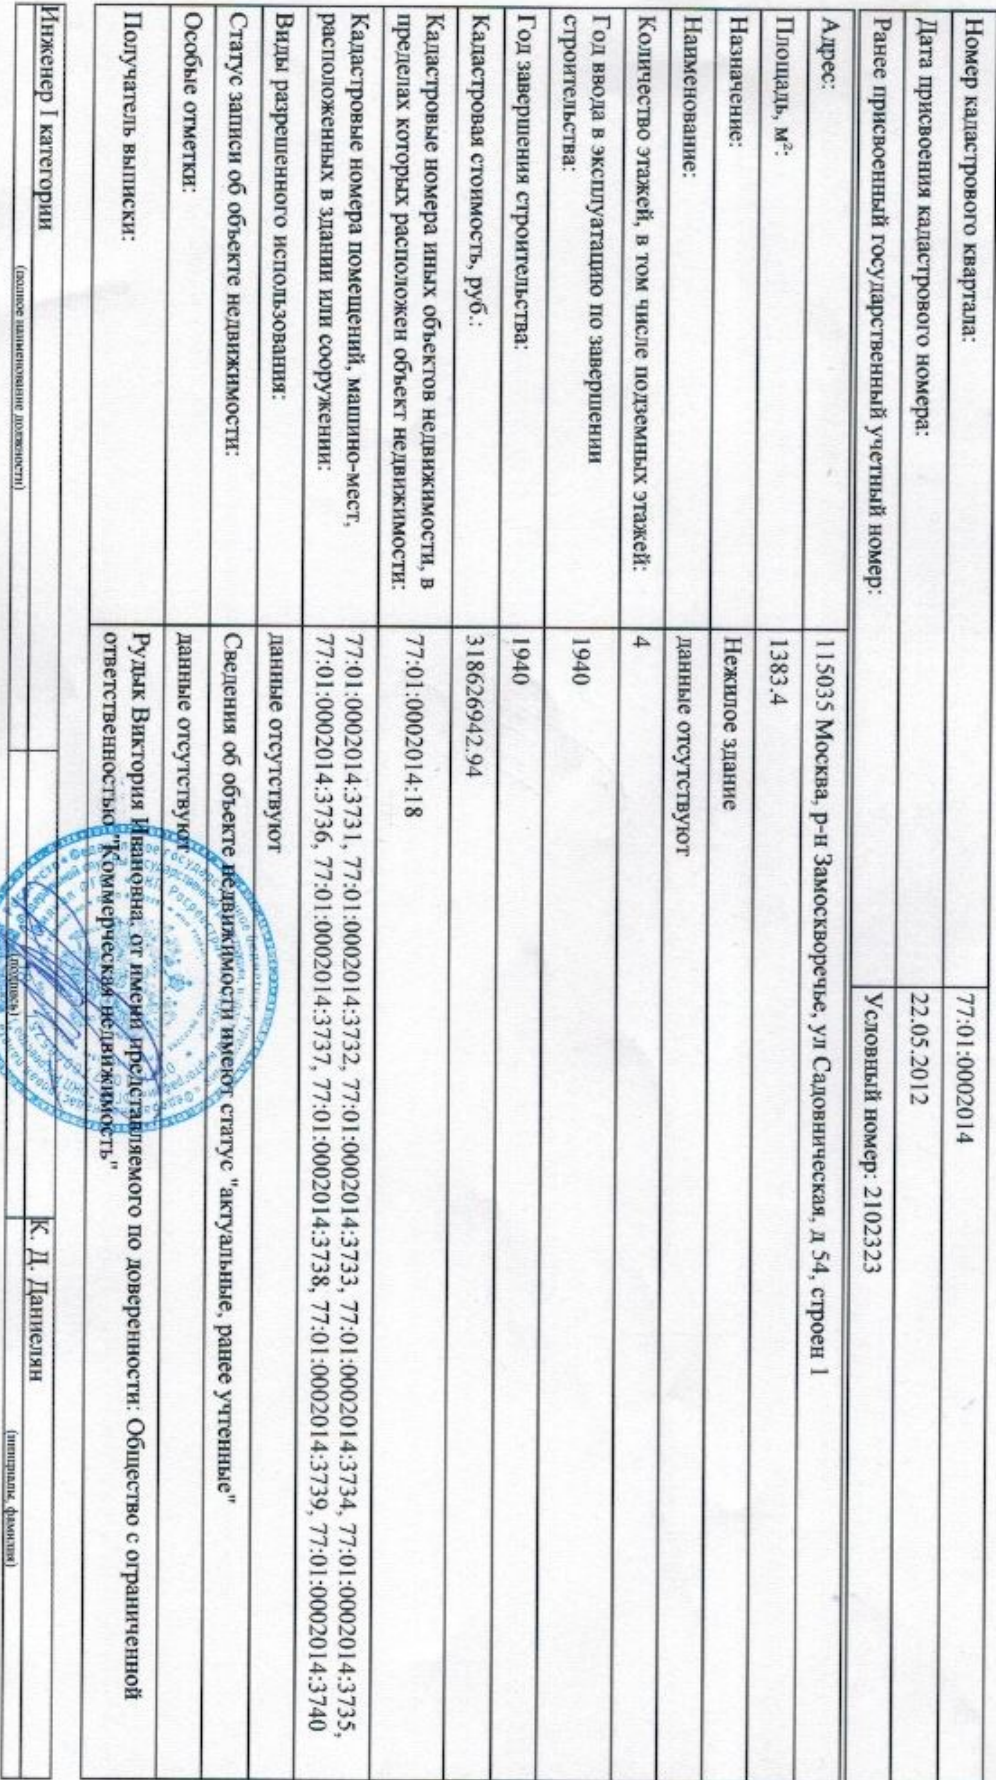 Номер кадастрового квартала: 77:01:0002014
Дата присвоения кадастрового номера: 22.05.2012
Ранее присвоенный государственный учетный номер: Условный номер: 2102323
Адрес: 115035 Москва, р-н Замоскворечье, ул Садовническая, д 54, строен 1
Площадь, м²: 1383.4
Назначение: Нежилое здание
Наименование: данные отсутствуют
Количество этажей, в том числе подземных этажей: 4
Год ввода в эксплуатацию по завершении
строительства: 1940
Год завершения строительства: 1940
Кадастровая стоимость, руб.: 318626942.94
Кадастровые номера иных объектов недвижимости, в
пределах которых расположен объект недвижимости: 77:01:0002014:18
Кадастровые номера помещений, машино-мест,
расположенных в здании или сооружении:
77:01:0002014:3731, 77:01:0002014:3732, 77:01:0002014:3733, 77:01:0002014:3734, 77:01:0002014:3735,
77:01:0002014:3736, 77:01:0002014:3737, 77:01:0002014:3738, 77:01:0002014:3739, 77:01:0002014:3740
Виды разрешенного использования: данные отсутствуют
Статус записи об объекте недвижимости: Сведения об объекте недвижимости имеют статус "актуальные, ранее учтенные"
Особые отметки: данные отсутствуют
Получатель выписки: Рудык Виктория Ивановна, от имени представляемого по доверенности: Общество с ограниченной
ответственностью "Коммерческая недвижимость"
Инженер I категории К. Д. Даниелян
(полное наименование должности) (подпись) (инициалы, фамилия)